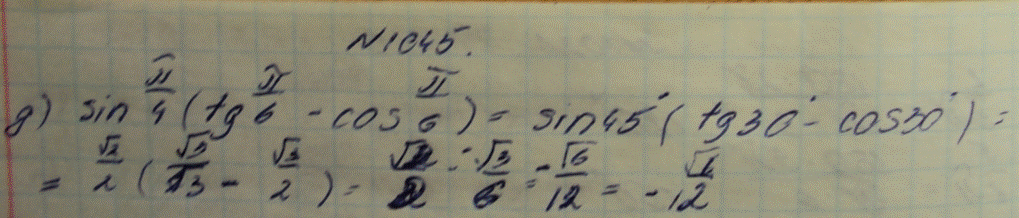 N1045.
д) sin π/4 (tg π/6 - cos π/6) = sin45° (tg30° - cos30°) =
= √2/2 (√3/3 - √3/2) = √2/2 · -√3/6 = -√6/12 = -√6/12